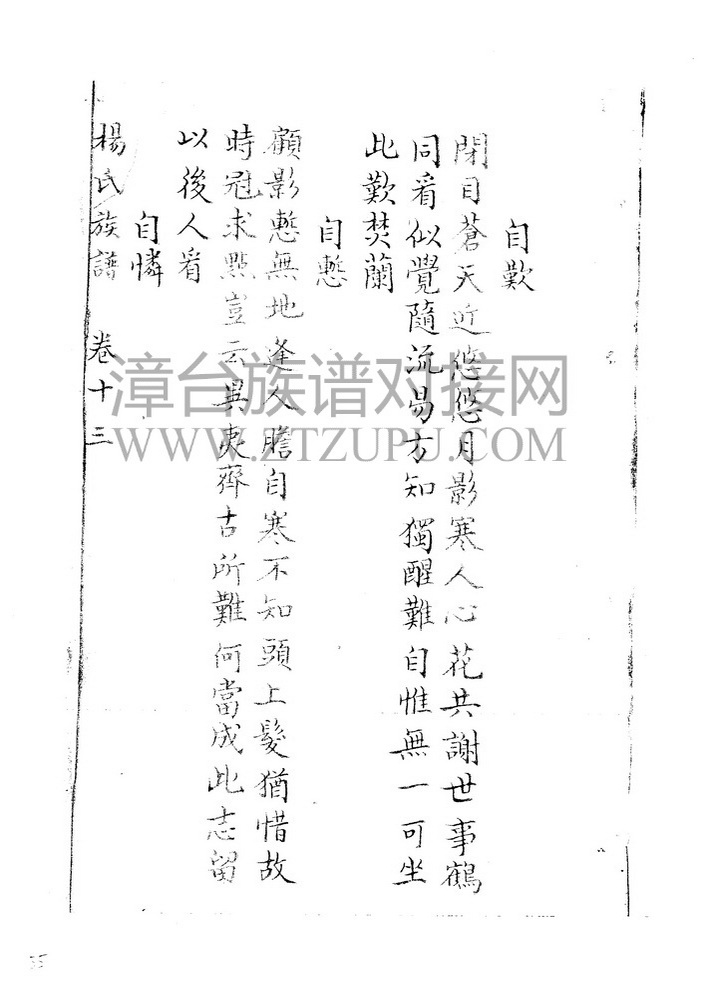 自歎
閉目蒼天近悠悠月影寒人心花共謝世事鶴
同看似覺隨流易方知獨醒難自惟無一可坐
此歎焚蘭
自慙
顧影慙無地逢人膽自寒不知頭上髮猶惜故
時冠求點豈云異夷齊古所難何當成此志留
以後人看
自憐
楊氏族譜 卷十三
漳台族谱对接网
WWW.ZTZUPU.COM